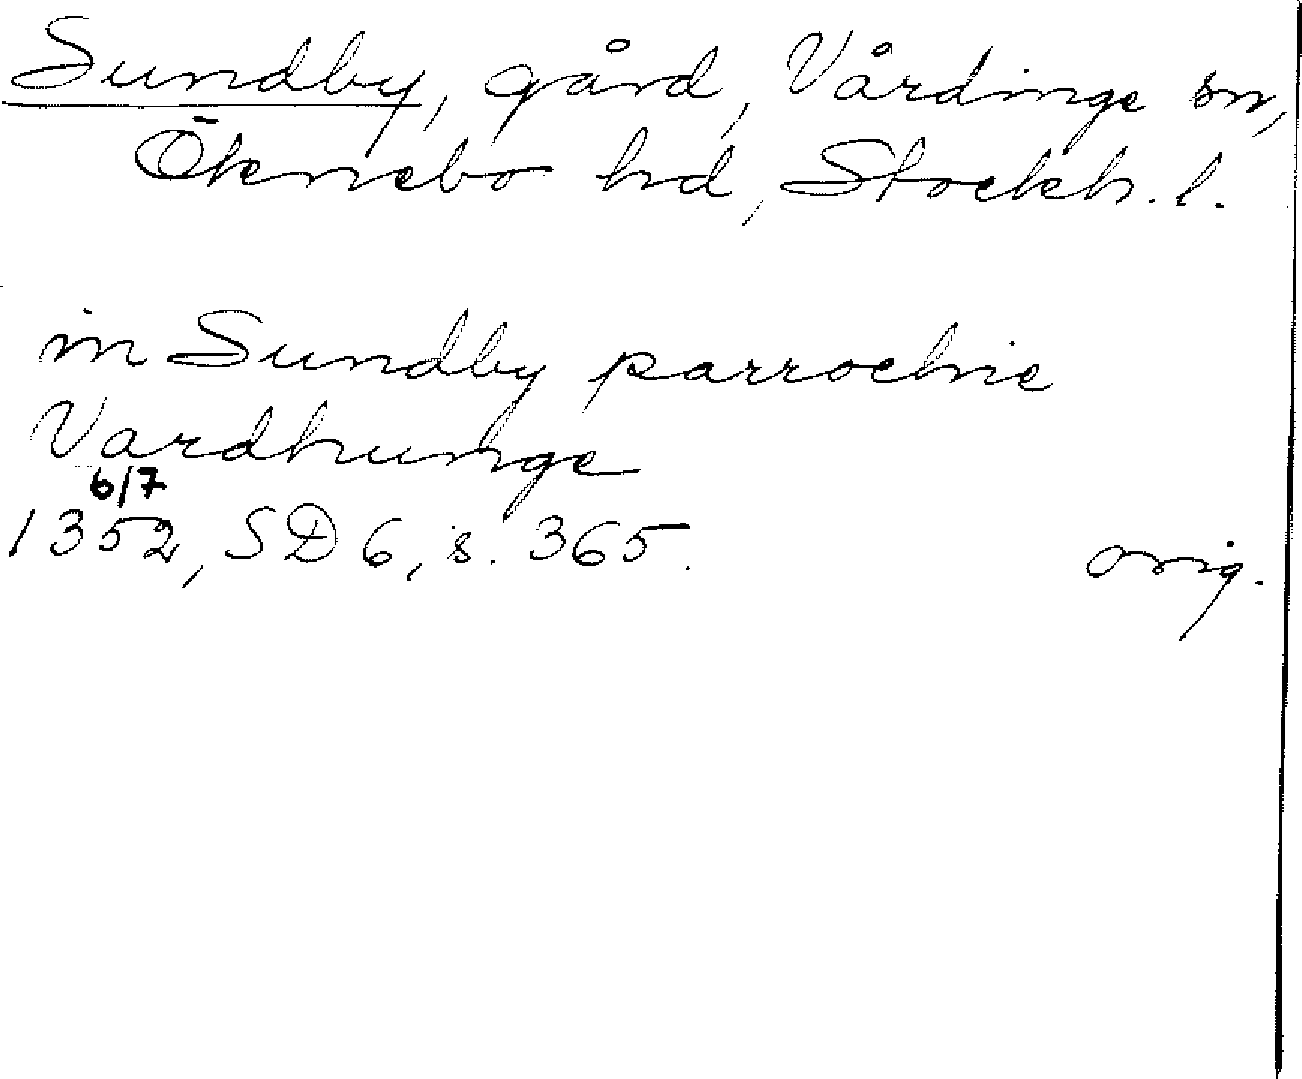 Sundby, gård, Vårdinge sn,
Öknebo hd, Stockh. l.
in Sundby parrochie
Vardhunge
6/7
1352, SD 6, s. 365.
orig.